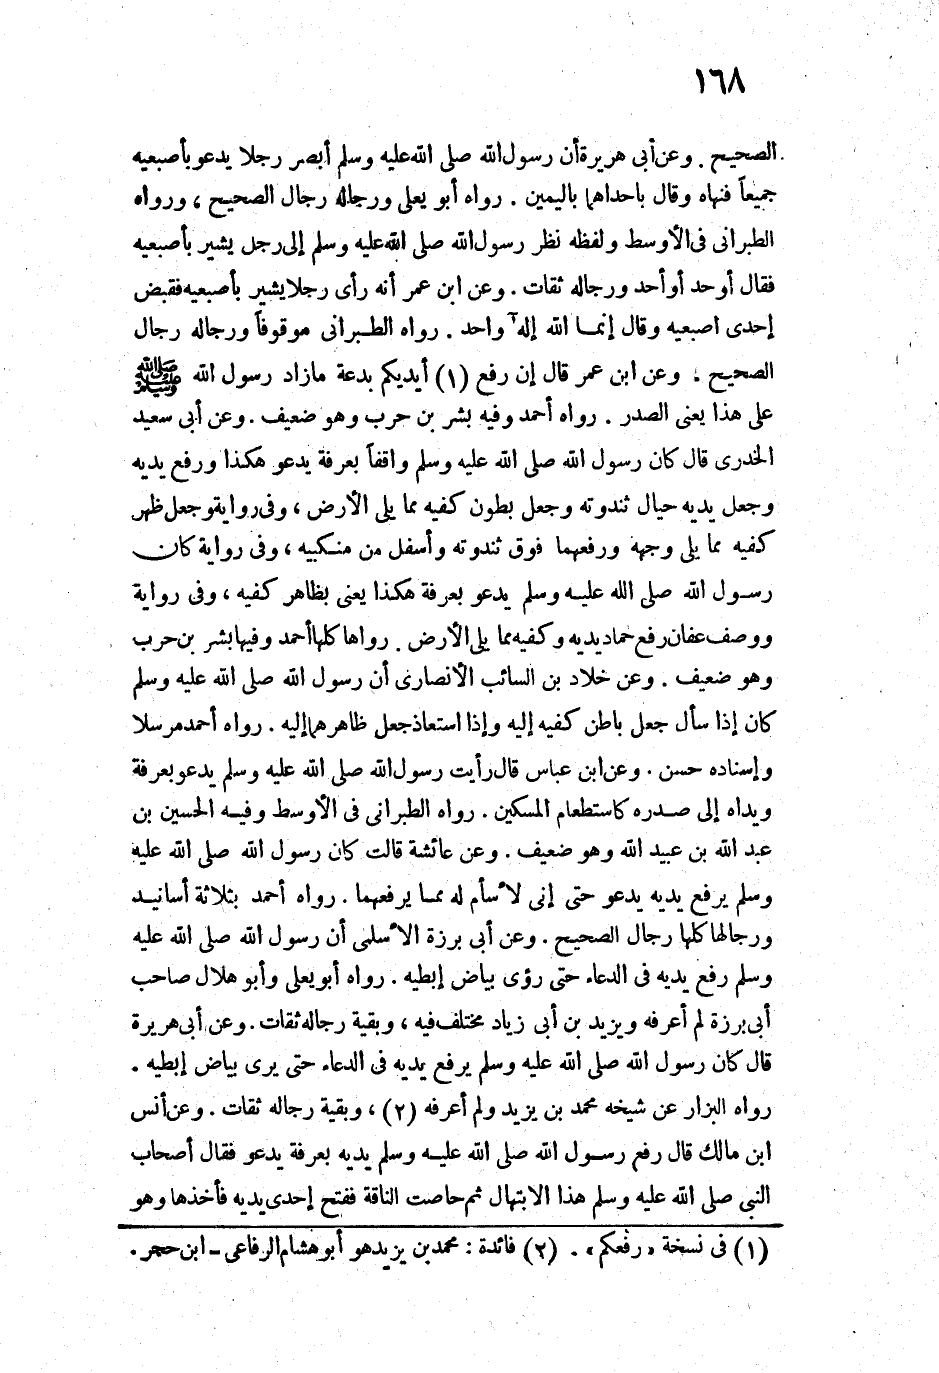 ١٦٨
الصحيح . وعن أبى هريرة أن رسول الله صلى الله عليه وسلم أبصر رجلا يدعو بأصبعيه
جميعاً فنهاه وقال باحداها باليمين . رواه أبو يعلى ورجاله رجال الصحيح ، ورواه
الطبرانى فى الأوسط ولفظه نظر رسول الله صلى الله عليه وسلم إلى رجل يشير بأصبعيه
فقال أوحد أو أحد ورجاله ثقات . وعن ابن عمر أنه رأى رجلا يشير بأصبعيه فقبض
إحدى اصبعيه وقال إنما الله إله واحد . رواه الطبرانى موقوفاً ورجاله رجال
الصحيح . وعن ابن عمر قال إن رفع (١) أيديكم بدعة مازاد رسول الله ﷺ
على هذا يعنى الصدر . رواه أحمد وفيه بشر بن حرب وهو ضعيف . وعن أبى سعيد
الخدرى قال كان رسول الله صلى الله عليه وسلم واقفاً بعرفة يدعو هكذا ورفع يديه
وجعل يديه حيال ثندوته وجعل بطون كفيه مما يلى الأرض ، وفى رواية وجعل ظهر
كفيه مما يلى وجهه ورفعهما فوق ثندوته وأسفل من منكبيه ، وفى رواية كان
رسول الله صلى الله عليه وسلم يدعو بعرفة هكذا يعنى بظاهر كفيه ، وفى رواية
ووصف عفان رفع حماد يديه وكفيه مما يلى الأرض . رواها كلها أحمد وفيها بشر بن حرب
وهو ضعيف . وعن خلاد بن السائب الأنصارى أن رسول الله صلى الله عليه وسلم
كان إذا سأل جعل باطن كفيه إليه وإذا استعاذ جعل ظاهرها إليه . رواه أحمد مرسلا
وإسناده حسن . وعن ابن عباس قال رأيت رسول الله صلى الله عليه وسلم يدعو بعرفة
ويداه إلى صدره كاستطعام المسكين . رواه الطبرانى فى الأوسط وفيه الحسين بن
عبد الله بن عبيد الله وهو ضعيف . وعن عائشة قالت كان رسول الله صلى الله عليه
وسلم يرفع يديه يدعو حتى إنى لأسأم له مما يرفعهما . رواه أحمد بثلاثة أسانيد
ورجالها كلها رجال الصحيح . وعن أبى برزة الأسلمى أن رسول الله صلى الله عليه
وسلم رفع يديه فى الدعاء حتى رؤى بياض إبطيه . رواه أبو يعلى وأبو هلال صاحب
أبى برزة لم أعرفه ويزيد بن أبى زياد مختلف فيه ، وبقية رجاله ثقات . وعن أبى هريرة
قال كان رسول الله صلى الله عليه وسلم يرفع يديه فى الدعاء حتى يرى بياض إبطيه .
رواه البزار عن شيخه محمد بن يزيد ولم أعرفه (٢) ، وبقية رجاله ثقات . وعن أنس
ابن مالك قال رفع رسول الله صلى الله عليه وسلم يديه بعرفة يدعو فقال أصحاب
النبى صلى الله عليه وسلم هذا الابتهال ثم حاصت الناقة ففتح إحدى يديه فأخذها وهو
(١) فى نسخة « رفعكم » . (٢) فائدة : محمد بن يزيد هو أبو هشام الرفاعى ــ ابن حجر .